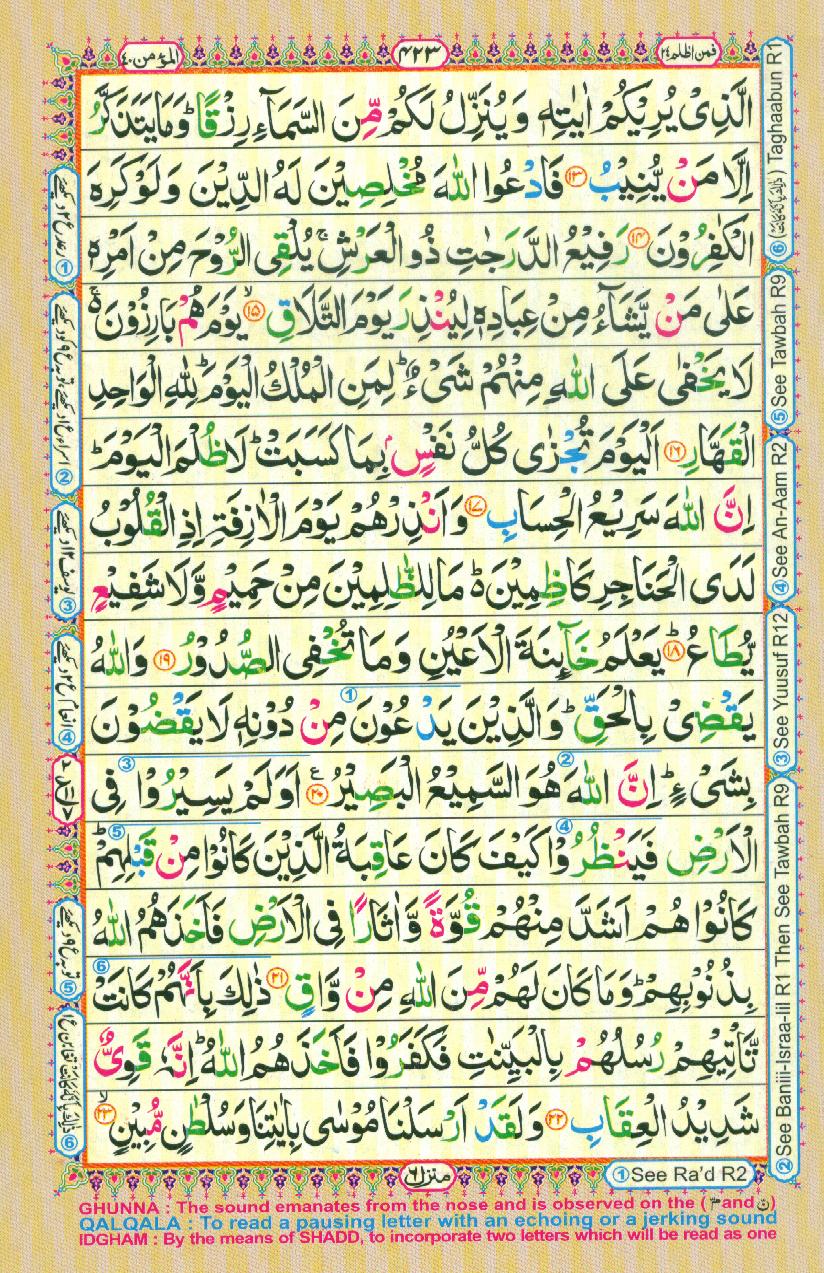 فمن اظلم ۲۴
۴۲۳
المؤمن ۴۰
الَّذِىْ يُرِيْكُمْ اٰيٰتِهٖ وَيُنَزِّلُ لَكُمْ مِّنَ السَّمَآءِ رِزْقًا ؕ وَمَا يَتَذَكَّرُ
اِلَّا مَنْ يُّنِيْبُ ۱۳ فَادْعُوا اللّٰهَ مُخْلِصِيْنَ لَهُ الدِّيْنَ وَلَوْ كَرِهَ
الْكٰفِرُوْنَ ۱۴ رَفِيْعُ الدَّرَجٰتِ ذُو الْعَرْشِ ۚ يُلْقِى الرُّوْحَ مِنْ اَمْرِهٖ
عَلٰى مَنْ يَّشَآءُ مِنْ عِبَادِهٖ لِيُنْذِرَ يَوْمَ التَّلَاقِ ۙ ۱۵ يَوْمَ هُمْ بَارِزُوْنَ ۚ۬
لَا يَخْفٰى عَلَى اللّٰهِ مِنْهُمْ شَىْءٌ ؕ لِمَنِ الْمُلْكُ الْيَوْمَ ؕ لِلّٰهِ الْوَاحِدِ
الْقَهَّارِ ۱۶ اَلْيَوْمَ تُجْزٰى كُلُّ نَفْسٍۭ بِمَا كَسَبَتْ ؕ لَا ظُلْمَ الْيَوْمَ ؕ
اِنَّ اللّٰهَ سَرِيْعُ الْحِسَابِ ۱۷ وَاَنْذِرْهُمْ يَوْمَ الْاٰزِفَةِ اِذِ الْقُلُوْبُ
لَدَى الْحَنَاجِرِ كَاظِمِيْنَ ؕ۬ مَا لِلظّٰلِمِيْنَ مِنْ حَمِيْمٍ وَّلَا شَفِيْعٍ
يُّطَاعُ ؕ ۱۸ يَعْلَمُ خَآئِنَةَ الْاَعْيُنِ وَمَا تُخْفِى الصُّدُوْرُ ۱۹ وَاللّٰهُ
يَقْضِىْ بِالْحَقِّ ؕ وَالَّذِيْنَ يَدْعُوْنَ ① مِنْ دُوْنِهٖ لَا يَقْضُوْنَ
بِشَىْءٍ ؕ اِنَّ ② اللّٰهَ هُوَ السَّمِيْعُ الْبَصِيْرُ ۲۰ ع اَوَلَمْ يَسِيْرُوْا ③ فِى
الْاَرْضِ فَيَنْظُرُوْا ④ كَيْفَ كَانَ عَاقِبَةُ الَّذِيْنَ كَانُوْا مِنْ قَبْلِهِمْ ؕ ⑤
كَانُوْا هُمْ اَشَدَّ مِنْهُمْ قُوَّةً وَّاٰثَارًا فِى الْاَرْضِ فَاَخَذَهُمُ اللّٰهُ
بِذُنُوْبِهِمْ ؕ وَمَا كَانَ لَهُمْ مِّنَ اللّٰهِ مِنْ وَّاقٍ ۲۱ ذٰلِكَ بِاَنَّهُمْ كَانَتْ ⑥
تَّاْتِيْهِمْ رُسُلُهُمْ بِالْبَيِّنٰتِ فَكَفَرُوْا فَاَخَذَهُمُ اللّٰهُ ؕ اِنَّهٗ قَوِىٌّ
شَدِيْدُ الْعِقَابِ ۲۲ وَلَقَدْ اَرْسَلْنَا مُوْسٰى بِاٰيٰتِنَا وَسُلْطٰنٍ مُّبِيْنٍ ۙ ۲۳
⑥ (ذٰلِكَ بِاَنَّهٗ كَانَتْ) Taghaabun R1
⑤ See Tawbah R9
④ See An-Aam R2
③ See Yuusuf R12
② See Baniii-Israa-Iil R1 Then See Tawbah R9
① See Ra'd R2
منزل ۶
GHUNNA : The sound emanates from the nose and is observed on the ( مّ and نّ )
QALQALA : To read a pausing letter with an echoing or a jerking sound
IDGHAM : By the means of SHADD, to incorporate two letters which will be read as one